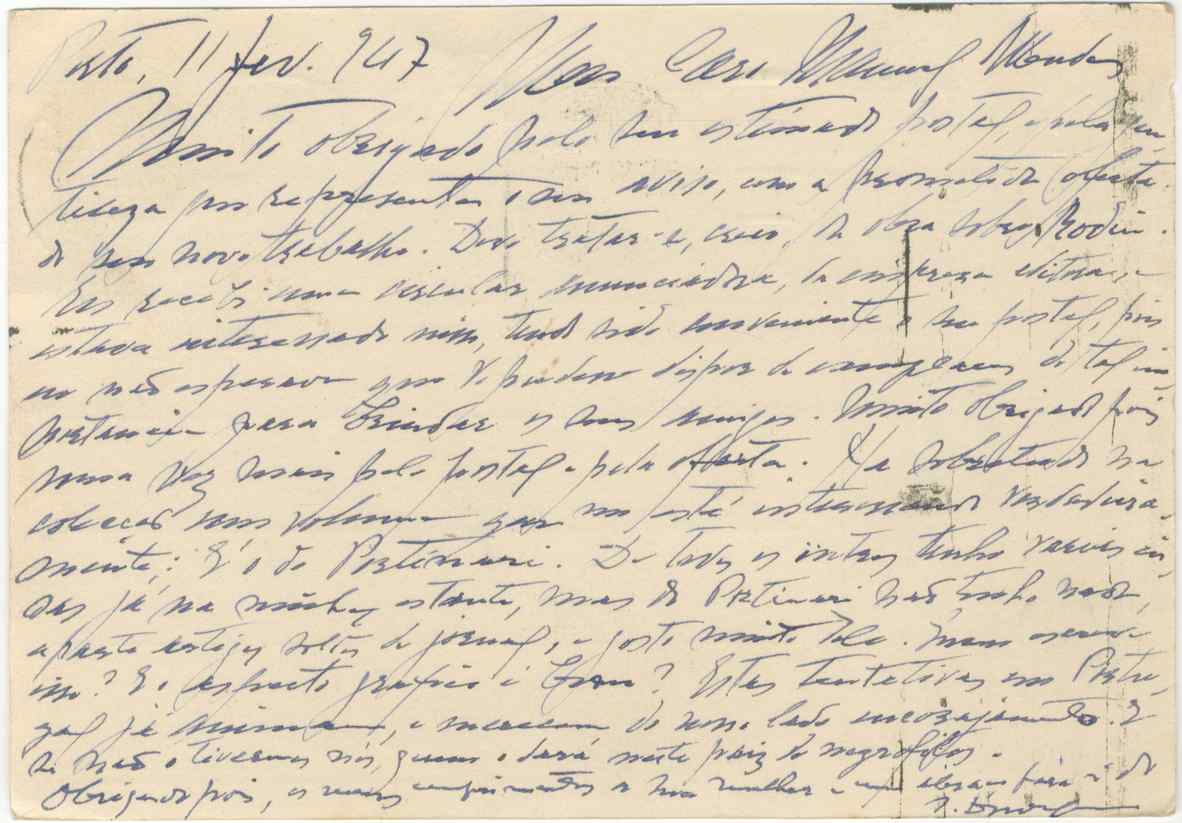 Porto, 11 fev. 947 Meu Caro Manuel Mendes
Muito obrigado pelo seu estimado postal, e pela gen
tileza que representa o seu aviso, com a prometida oferta
do seu novo trabalho. Deve tratar-se, creio, da obra sobre Rodin.
Eu recebi uma circular anunciadora, da empreza editora, e
estava interessado nisso, tendo sido conveniente o seu postal, pois
eu não esperava que V. pudesse dispor de exemplares de tal im
portancia para brindar os seus amigos. Muito obrigado pois
uma vez mais pelo postal e pela oferta. Ha sobretudo na
coleção um volume que me está interessando verdadeira
mente; É o do Portinari. De todos os outros tenho varias cou
sas já na minha estante, mas do Portinari não tenho nada,
aparte artigos soltos de jornal, e gosto muito dele. Quem escreve
isso? E o aspecto grafico é bom? Estas tentativas em Portu
gal já animam, e merecem do nosso lado encorajamento. E
se não o tivermos nós, quem o dará neste paiz de
Obrigado pois, os meus cumprimentos a sua mulher e um abraço para si do